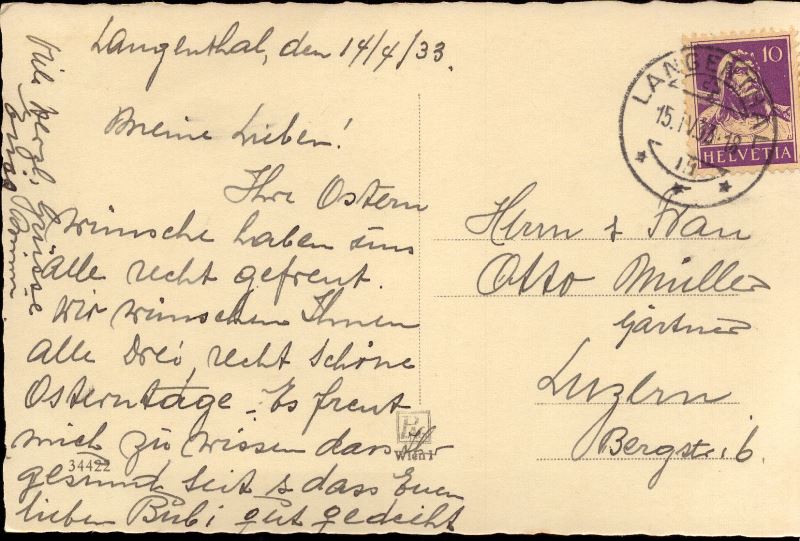 Langenthal, den 14/4/33.
Meine Lieben!
Ihre Ostern
wünsche haben uns
alle recht gefreut.
Wir wünschen Ihnen
alle Drei, recht schöne
Osterntage. Es freut
mich zu wissen dass Ihr
gesund seit & dass Euer
lieben Bubi gut gedeiht
Viele herzl. Grüsse
34422
Wien I
LANGENTHAL
15.IV.33.18
10
HELVETIA
Herrn & Frau
Otto Müller
Gärtner
Luzern
Bergstr. 6.